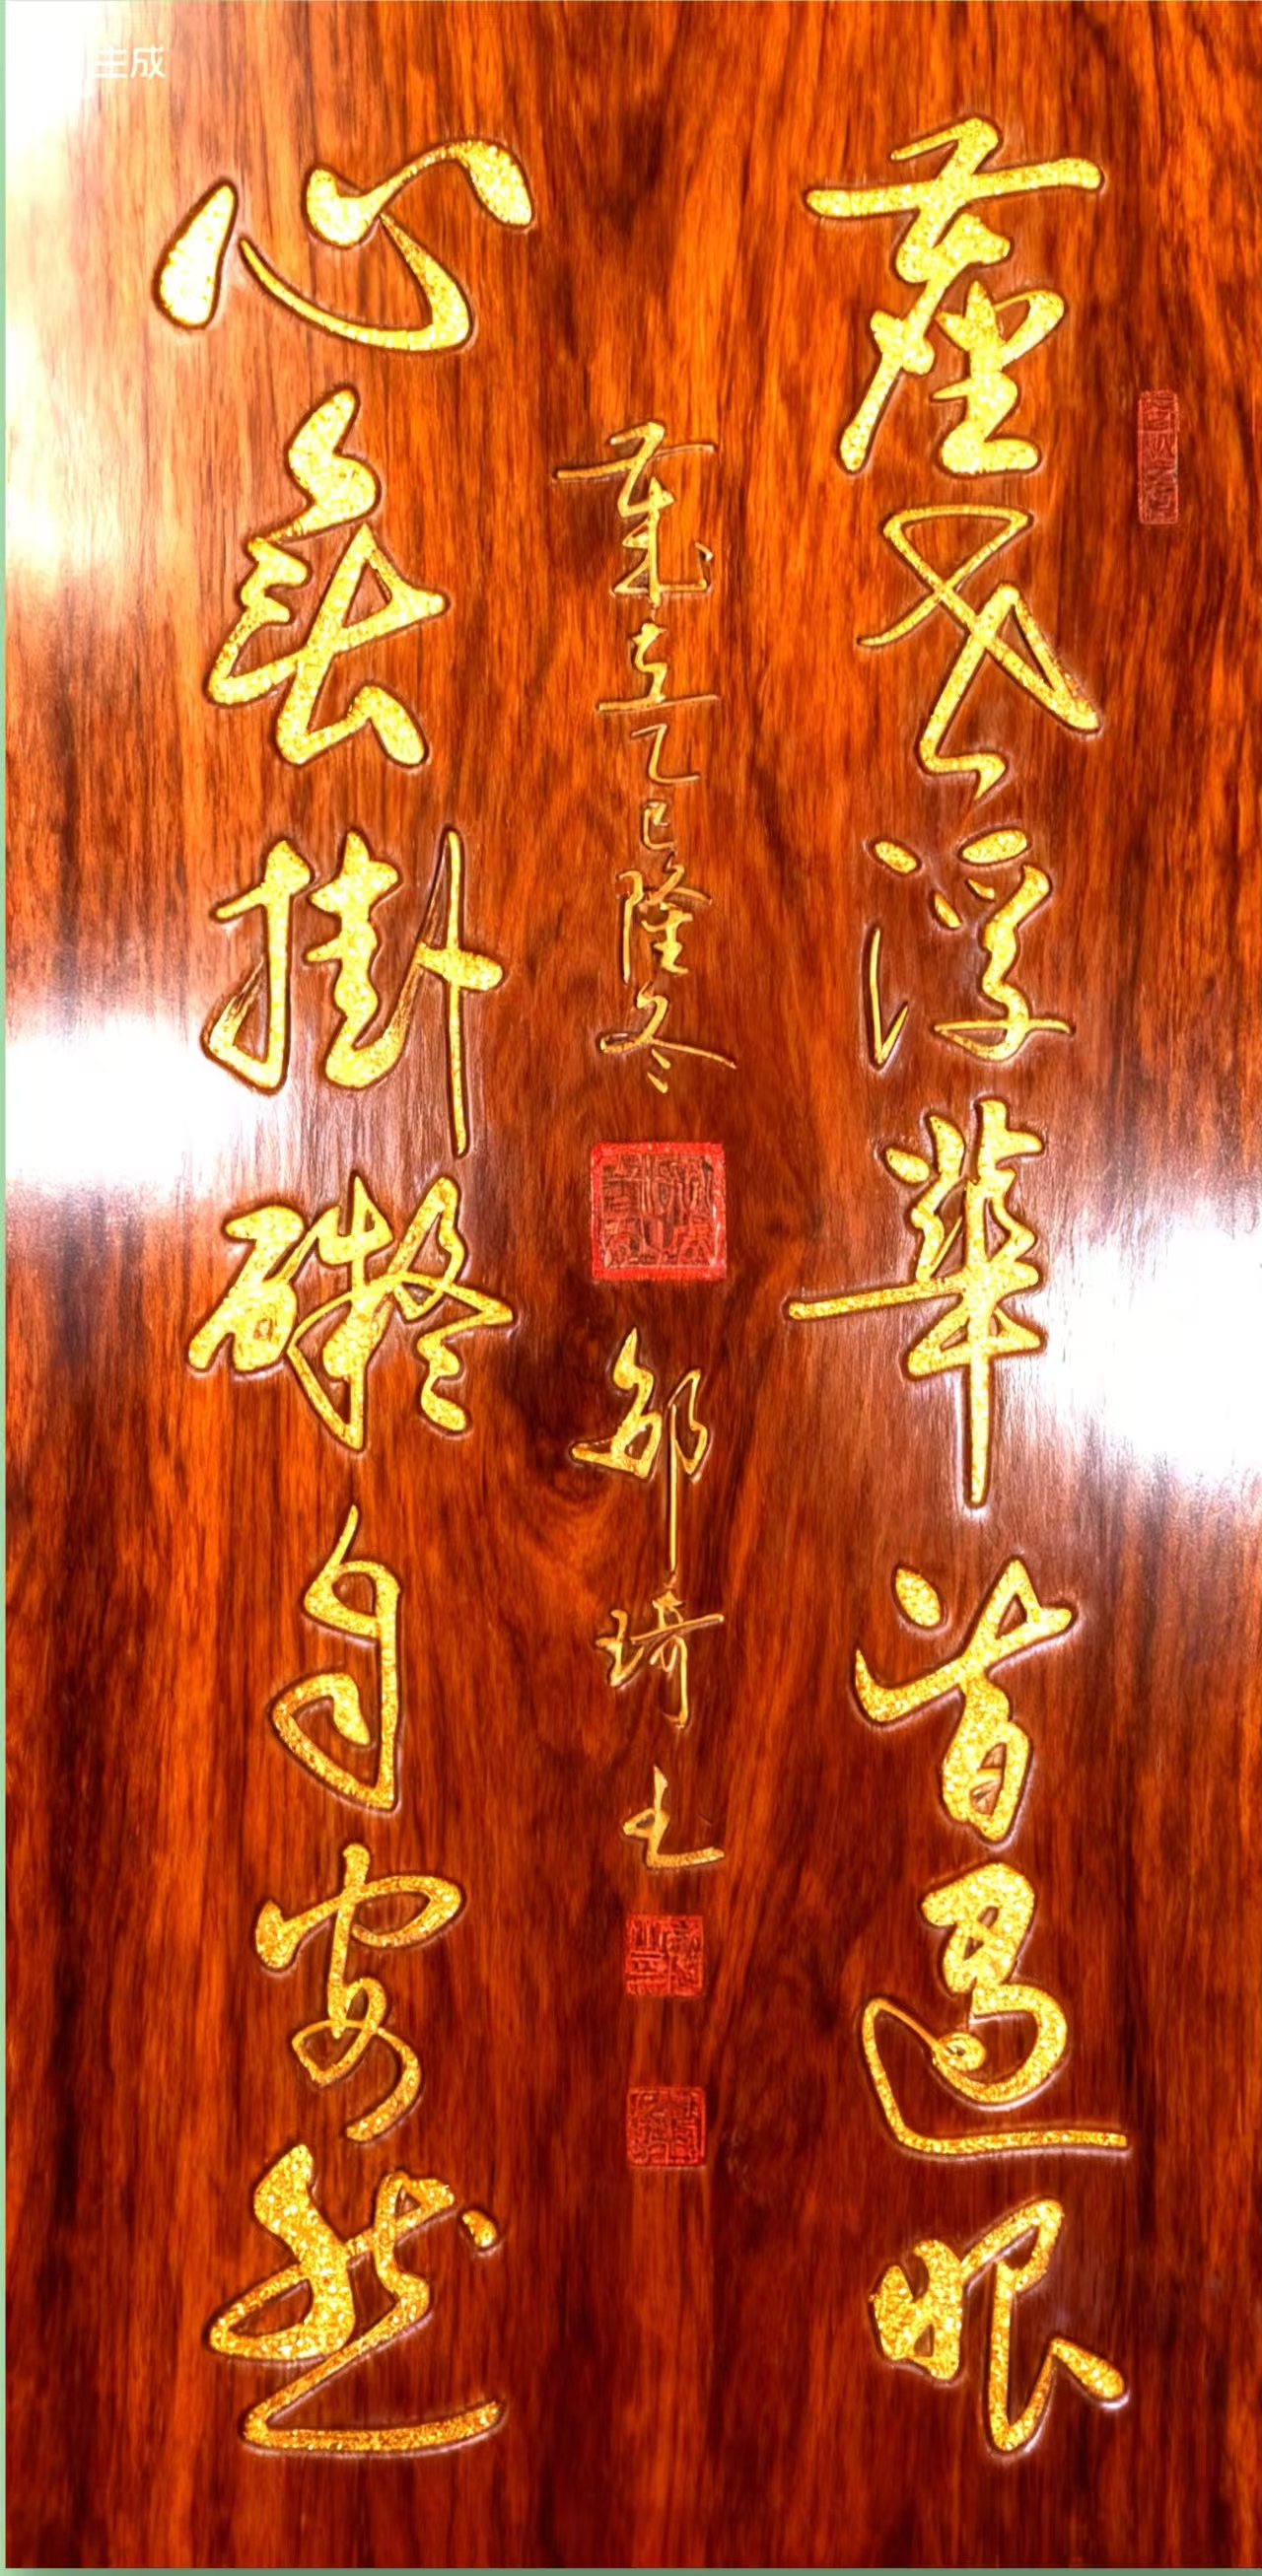 尘世浮华皆过眼
心无挂碍自安然
岁在乙巳隆冬
邹琦书
生成